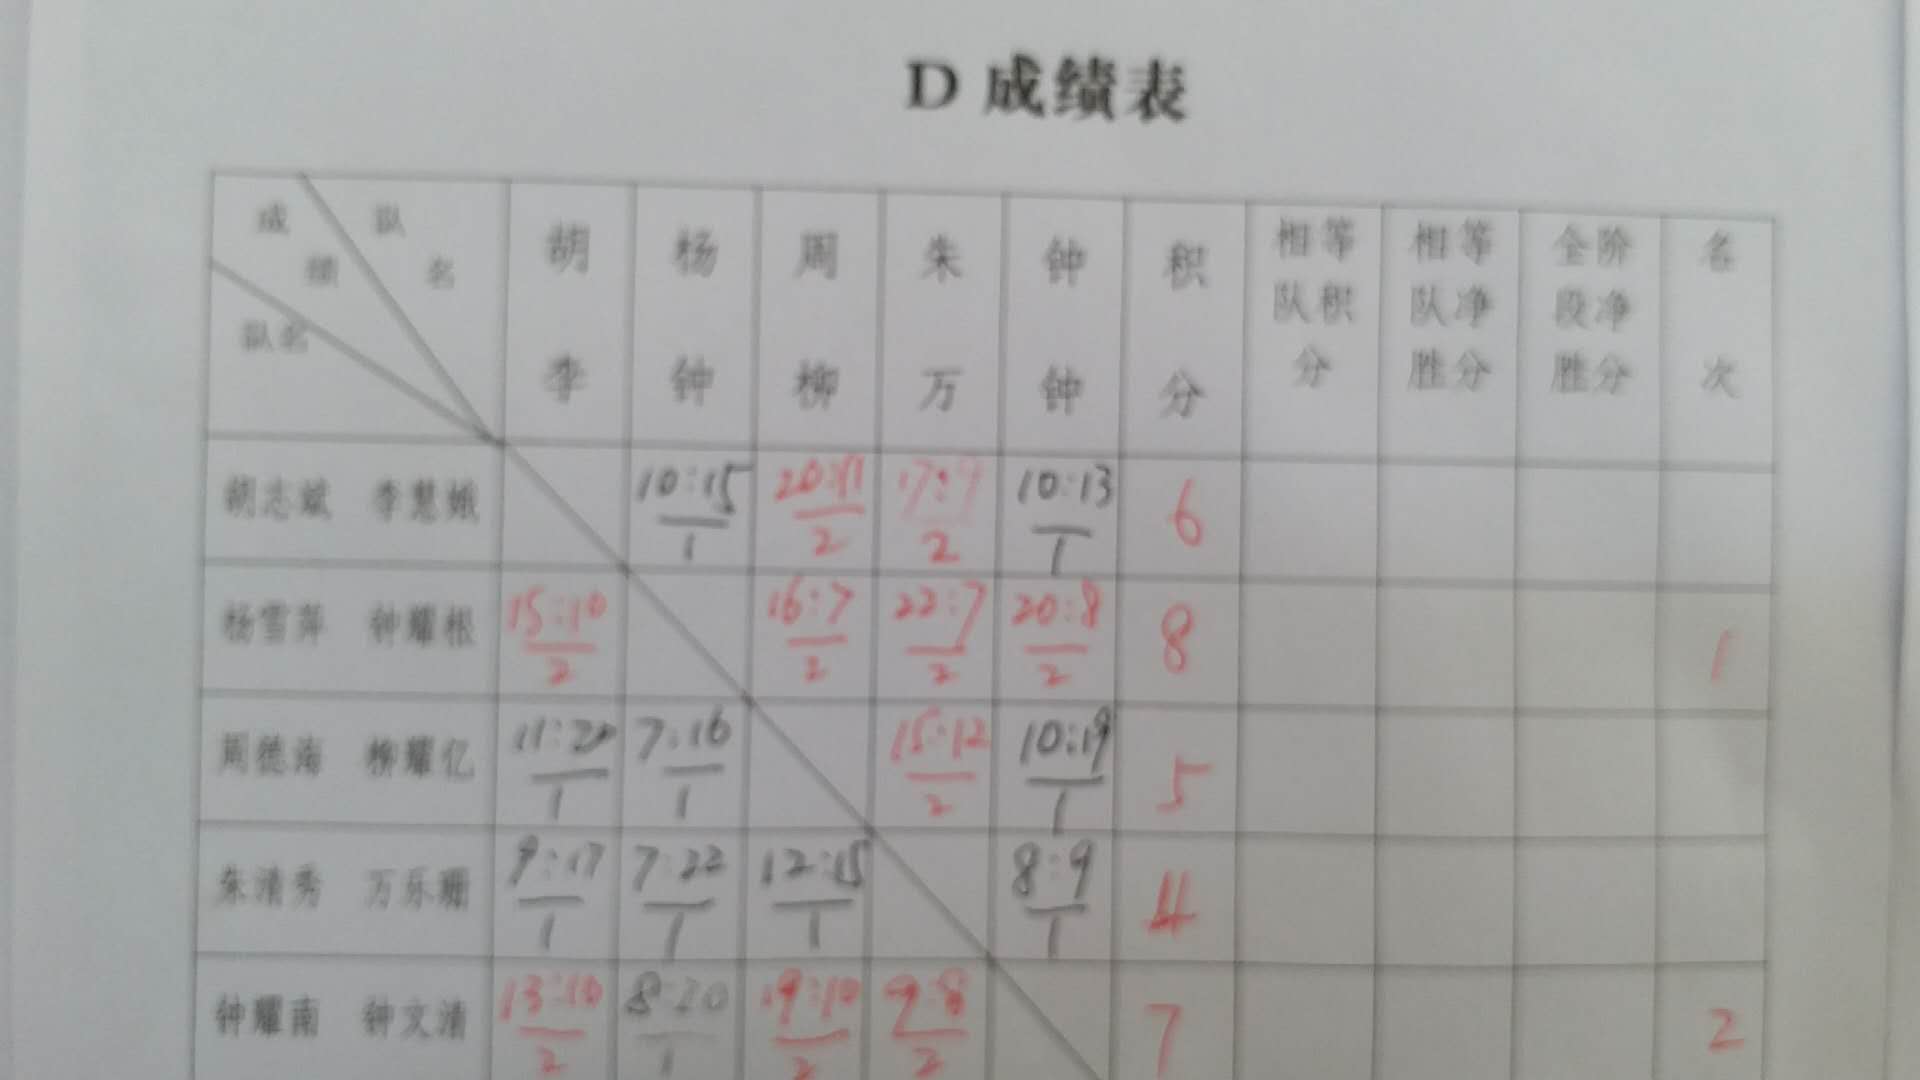 D 成绩表
成绩 队名 队名 胡李 杨钟 周柳 朱万 钟钟 积分 相等队积分 相等队净胜分 全阶段净胜分 名次
胡志斌 李慧娥 10:15/1 20:11/2 17:9/2 10:13/1 6
杨雪萍 钟耀根 15:10/2 16:7/2 22:7/2 20:8/2 8 1
周德海 柳耀亿 11:20/1 7:16/1 15:12/2 10:19/1 5
朱清秀 万乐珊 9:17/1 7:22/1 12:15/1 8:9/1 4
钟耀南 钟文清 13:10/2 8:20/1 19:10/2 9:8/2 7 2